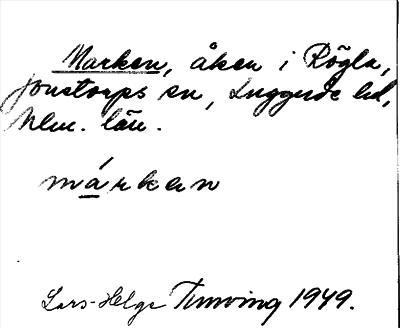 Marken, åker i Rögla,
Jonstorps sn, Luggude hd,
Mlm. län.
márken
Lars-Helge Tunving 1949.